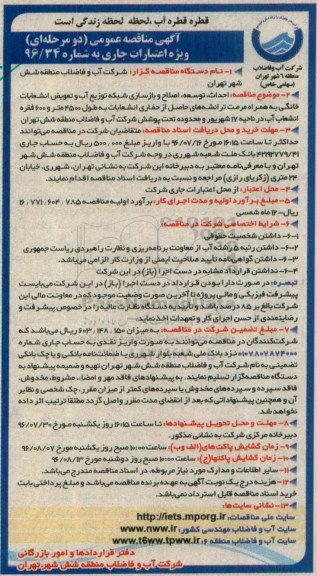 قطره قطره آب، لحظه لحظه زندگی است
آگهی مناقصه عمومی (دو مرحله‌ای)
ویژه اعتبارات جاری به شماره ۹۶/۳۴
شرکت آب و فاضلاب
منطقه ۶ شهر تهران
(سهامی خاص)
۱- نام دستگاه مناقصه گزار: شرکت آب و فاضلاب منطقه شش
شهر تهران
۲- موضوع مناقصه: احداث، توسعه، اصلاح و بازسازی شبکه توزیع آب و تعویض انشعابات
خانگی به همراه مرمت ترانشه‌های حاصل از حفاری انشعابات به طول ۲۵۰۰ متر و ۶۰۰ فقره
انشعاب آب در ناحیه ۱۷ شهریور و محدوده تحت پوشش شرکت آب و فاضلاب منطقه شش تهران
۳- مهلت خرید و محل دریافت اسناد مناقصه: متقاضیان شرکت در مناقصه می‌توانند
حداکثر تا ساعت ۱۶:۱۵ مورخ ۹۶/۰۷/۱۶ با واریز مبلغ ۵۰۰/۰۰۰ ریال به حساب جاری
بانک ملت شعبه شهرری در وجه شرکت آب و فاضلاب منطقه شش شهر
تهران و با معرفی‌نامه معتبر به دبیرخانه این شرکت به نشانی تهران، شهرری، خیابان
۲۴ متری (زکریای رازی) مراجعه و نسبت به دریافت اسناد مناقصه اقدام نمایند.
۴- محل اعتبار: از محل اعتبارات جاری شرکت
۵- مبلغ برآورد اولیه و مدت اجرای کار: برآورد اولیه مناقصه ۱۶/۷۷۱/۶۰۴/۷۸۵
ریال - ۱۲ ماه شمسی
۶- شرایط اختصاصی شرکت در مناقصه:
۶-۱- داشتن شخصیت حقوقی
۶-۲- داشتن رتبه ۵ رشته آب از معاونت برنامه‌ریزی و نظارت راهبردی ریاست جمهوری
۶-۳- داشتن گواهی‌نامه تأیید صلاحیت ایمنی از وزارت کار الزامی می‌باشد.
۶-۴- نداشتن قرارداد مشابه در دست اجرا (باز) در این شرکت
تبصره: در صورت دارا بودن قرارداد در دست اجرا (باز) در این شرکت می‌بایست
پیشرفت فیزیکی و مالی پروژه تا آخرین صورت وضعیت موجود که در معاونت مالی این
شرکت بالغ بر ۸۵ درصد باشد و با تأییدیه دستگاه نظارت عالیه را در خصوص پیشرفت و
رضایتمندی از حسن اجرای کار و تعهدات اخذ نماید.
۷- مبلغ تضمین شرکت در مناقصه: به میزان ۶۰۳/۱۴۸/۱۵۰ ریال می‌باشد که
شرکت‌کنندگان در مناقصه می‌توانند به صورت واریز نقدی به حساب جاری شماره
۰۱۰۷۸۰۷۸۷۴۰۰۰ نزد بانک ملی شعبه بلوار شهرری یا ضمانت‌نامه بانکی و یا چک بانکی
تضمینی به نام شرکت آب و فاضلاب منطقه شش شهر تهران تهیه و ضمیمه پیشنهاد به
دستگاه مناقصه‌گزار تسلیم نمایند. به پیشنهادهای فاقد مهر و امضا، مشروط، مخدوش،
فاقد سپرده و سپرده‌های مخدوش یا سپرده‌های کمتر از میزان مقرر، چک شخصی و نظایر
آن و همچنین پیشنهاداتی که بعد از انقضای مدت مقرر واصل گردد مطلقاً ترتیب اثر داده
نخواهد شد.
۸- مهلت و محل تحویل پیشنهادها: تا ساعت ۱۶:۱۵ روز یکشنبه مورخ ۹۶/۰۷/۳۰
دبیرخانه مرکزی شرکت به نشانی مذکور.
۹- زمان گشایش پاکت‌های (الف و ب): ساعت ۱۰:۰۰ صبح روز یکشنبه مورخ ۹۶/۰۸/۰۷
۱۰- زمان گشایش پاکتها (ج): ساعت ۱۰:۰۰ صبح روز دوشنبه مورخ
۱۱- سایر اطلاعات و مدارک مورد نیاز مربوطه، در اسناد مناقصه مندرج می‌باشد.
۱۲- هزینه درج یک نوبت آگهی به عهده برنده مناقصه می‌باشد و مبلغ پرداختی بابت
خرید اسناد مناقصه قابل استرداد نمی‌باشد.
۱۳- نشانی سایت‌ها:
سایت ملی مناقصات: http://iets.mporg.ir
سایت آب و فاضلاب مهندسی کشور: www.nww.ir
سایت آب و فاضلاب منطقه ۶: www.t6ww.tpww.ir
دفتر قراردادها و امور بازرگانی
شرکت آب و فاضلاب منطقه شش شهر تهران